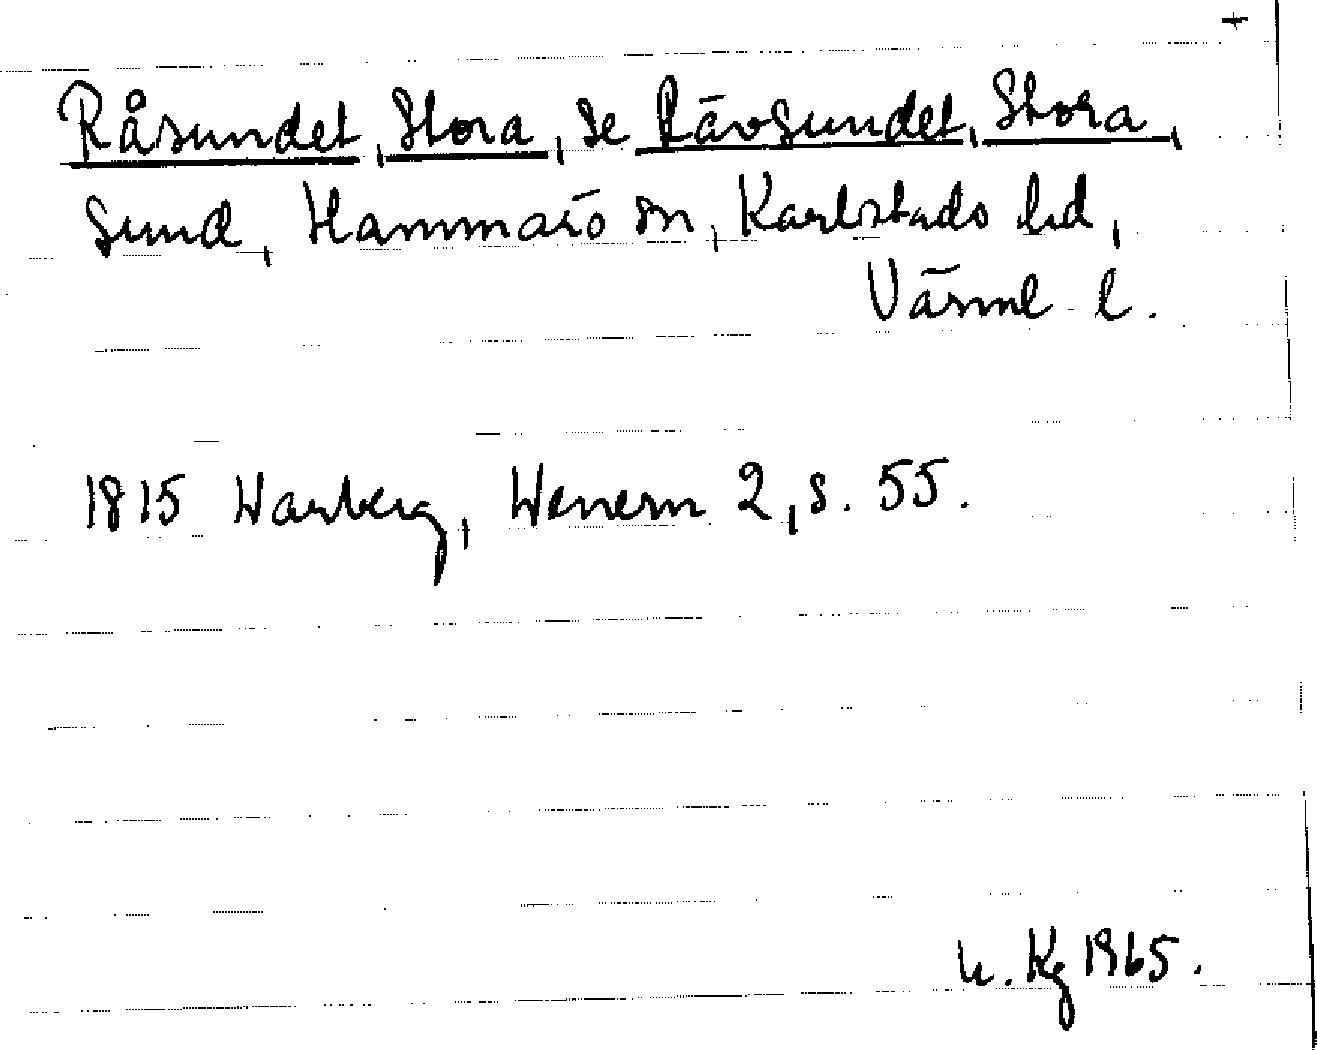 +
Råsundet, Stora, se Rävsundet, Stora,
sund, Hammarö sn, Karlstads hd,
Värml l.
1815 Warberg, Wenern 2, s. 55.
u. Kg 1965.